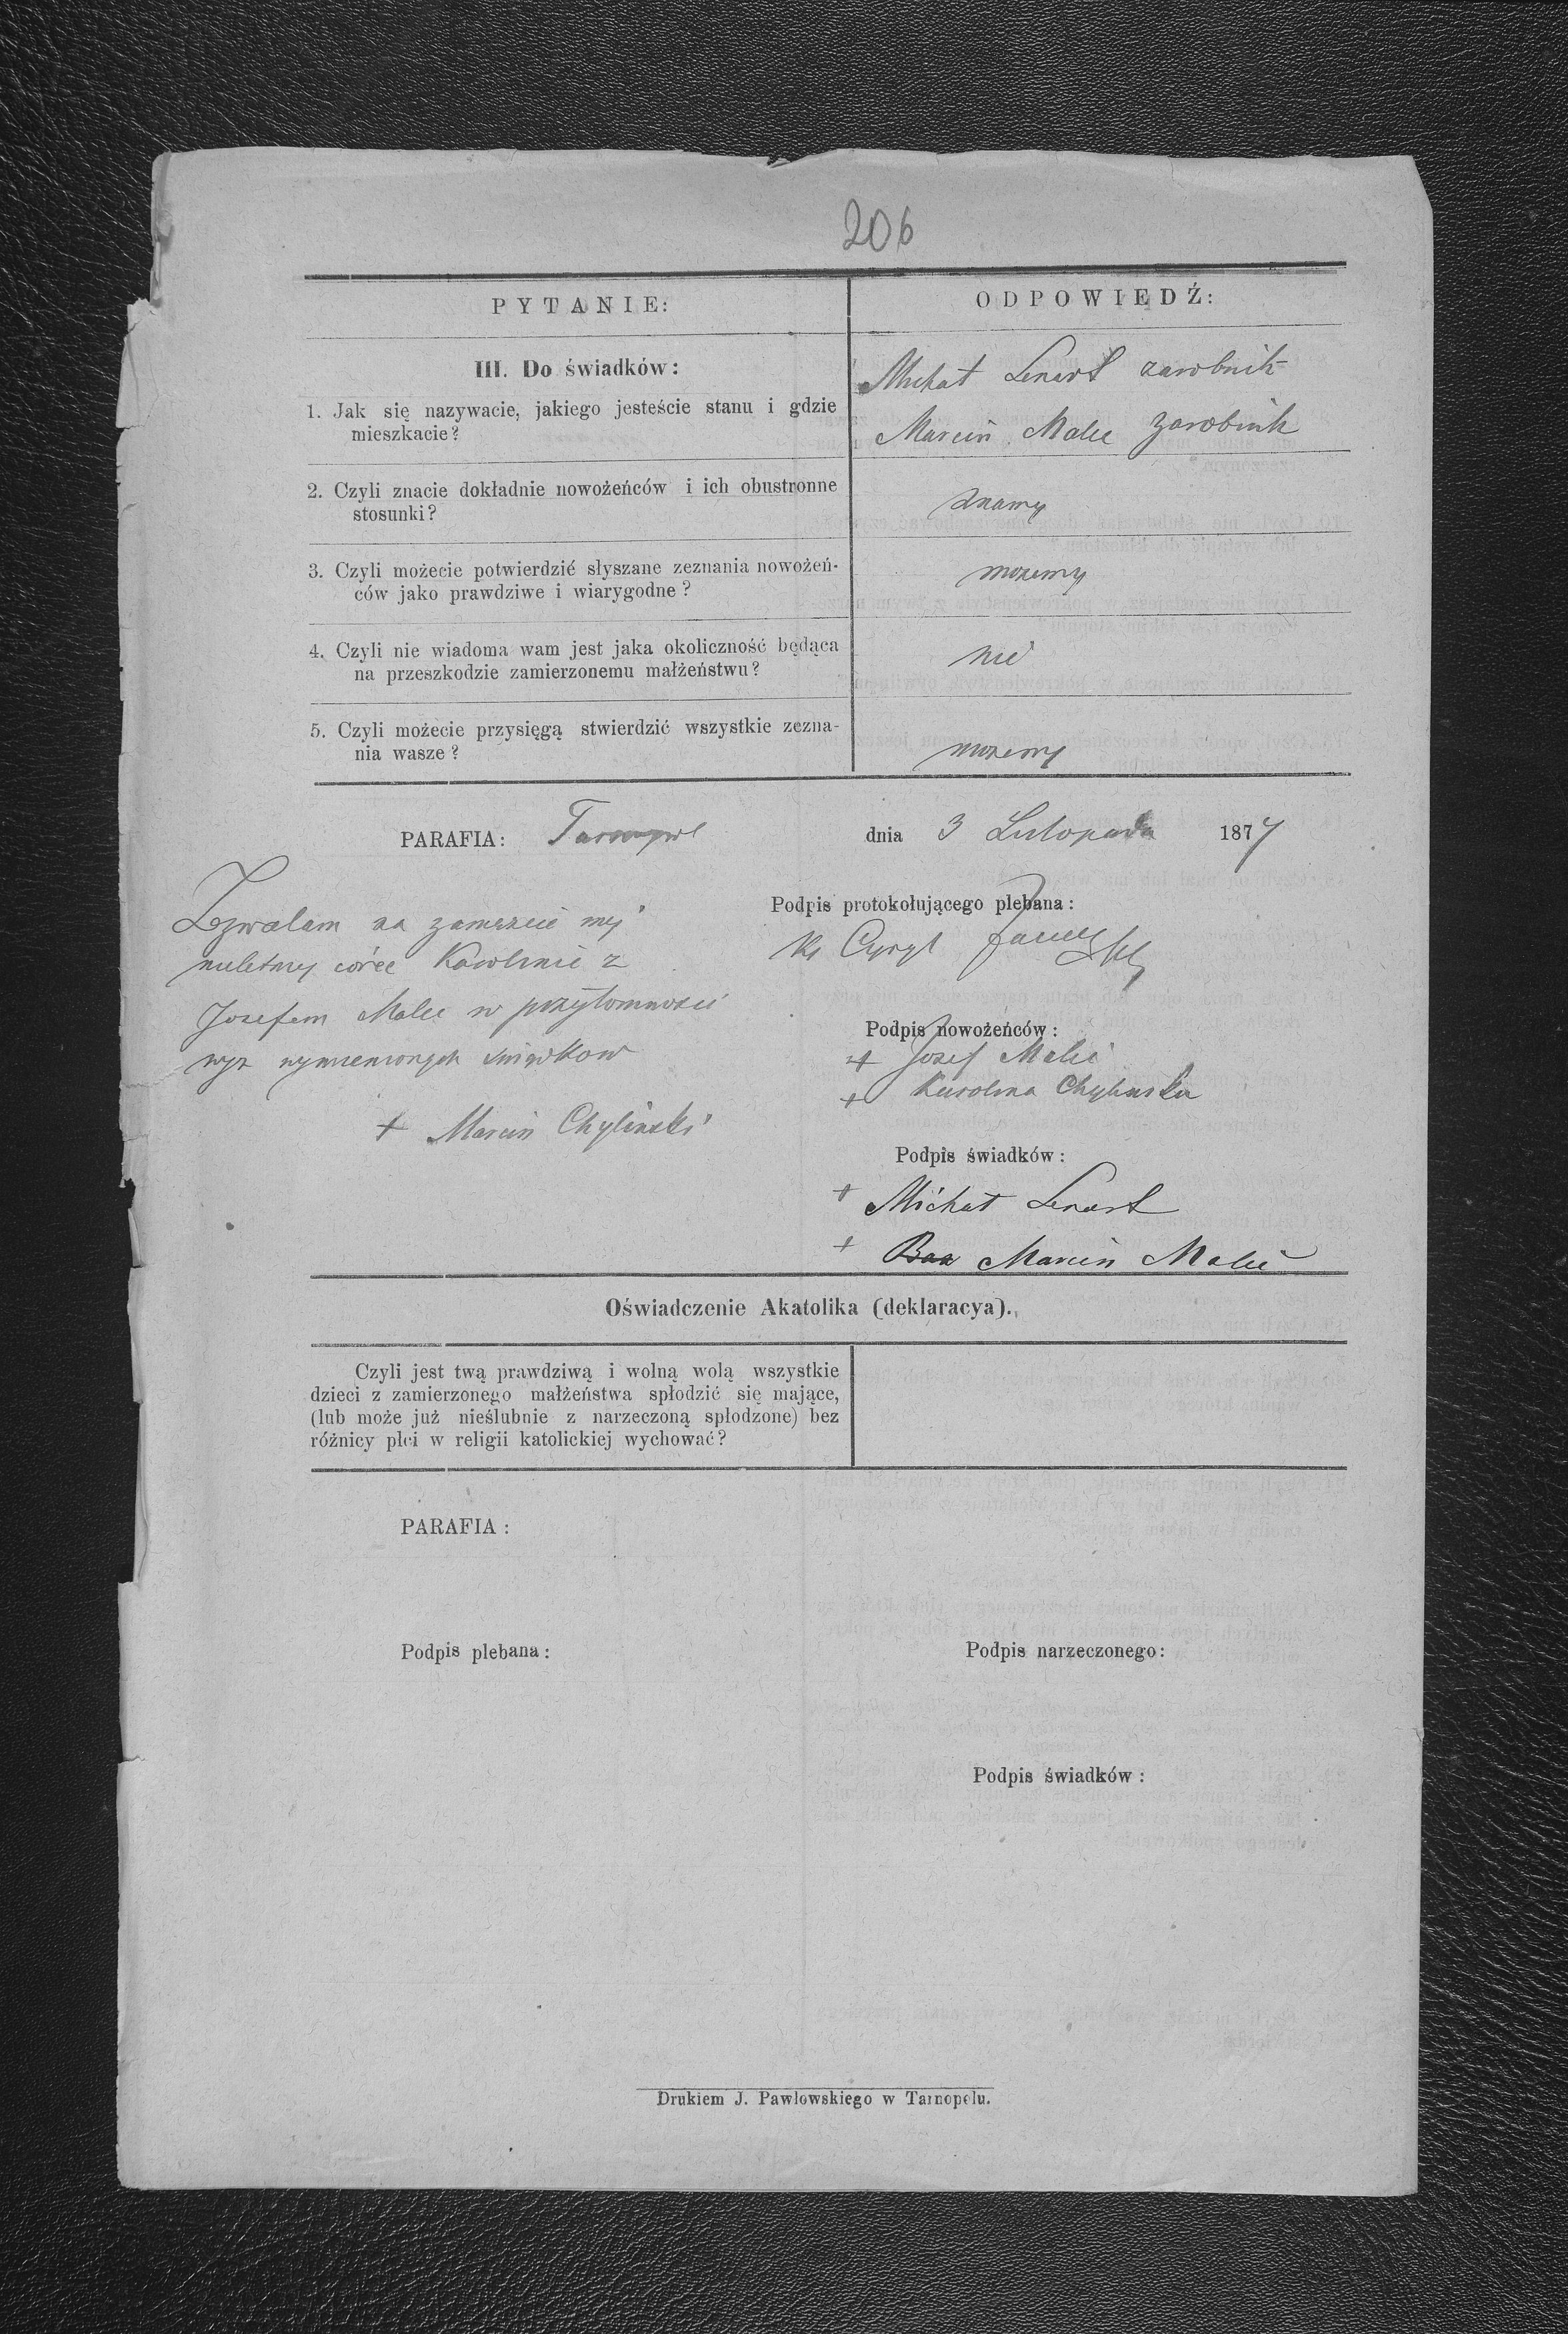 206
PYTANIE:
ODPOWIEDŹ:
III. Do świadków:
1. Jak się nazywacie, jakiego jesteście stanu i gdzie
mieszkacie?
Michał Lenart zarobnik
Marcin Malec zarobnik
2. Czyli znacie dokładnie nowożeńców i ich obustronne
stosunki?
znamy
3. Czyli możecie potwierdzić słyszane zeznania nowożeń-
ców jako prawdziwe i wiarygodne?
możemy
4. Czyli nie wiadoma wam jest jaka okoliczność będąca
na przeszkodzie zamierzonemu małżeństwu?
nie
5. Czyli możecie przysięgą stwierdzić wszystkie zezna-
nia wasze?
możemy
PARAFIA: Tarnopol
dnia 3 Listopada 1877
Zezwalam na zamęście mej
nieletniej córce Karolinie z
Josefem Malec w przytomności
wyż wymienionych świadkow
+ Marcin Chyliński
Podpis protokołującego plebana:
Ks Cyryl
Podpis nowożeńców:
+ Josef Malec
+ Karolina Chylinska
Podpis świadków:
+ Michał Lenart
+ Marcin Malec
Oświadczenie Akatolika (deklaracya).
Czyli jest twą prawdziwą i wolną wolą wszystkie
dzieci z zamierzonego małżeństwa spłodzić się mające,
(lub może już nieślubnie z narzeczoną spłodzone) bez
różnicy płci w religii katolickiej wychować?
PARAFIA:
Podpis plebana:
Podpis narzeczonego:
Podpis świadków:
Drukiem J. Pawłowskiego w Tarnopolu.